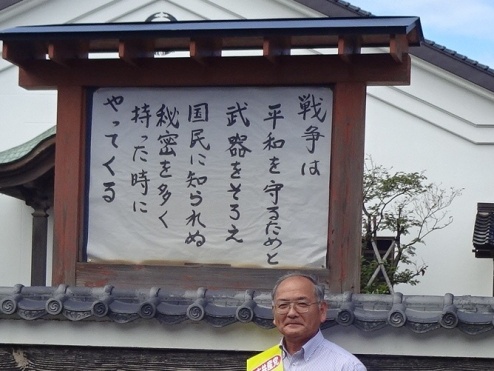 戦争は
平和を守るためと
武器をそろえ
国民に知られぬ
秘密を多く
持った時に
やってくる